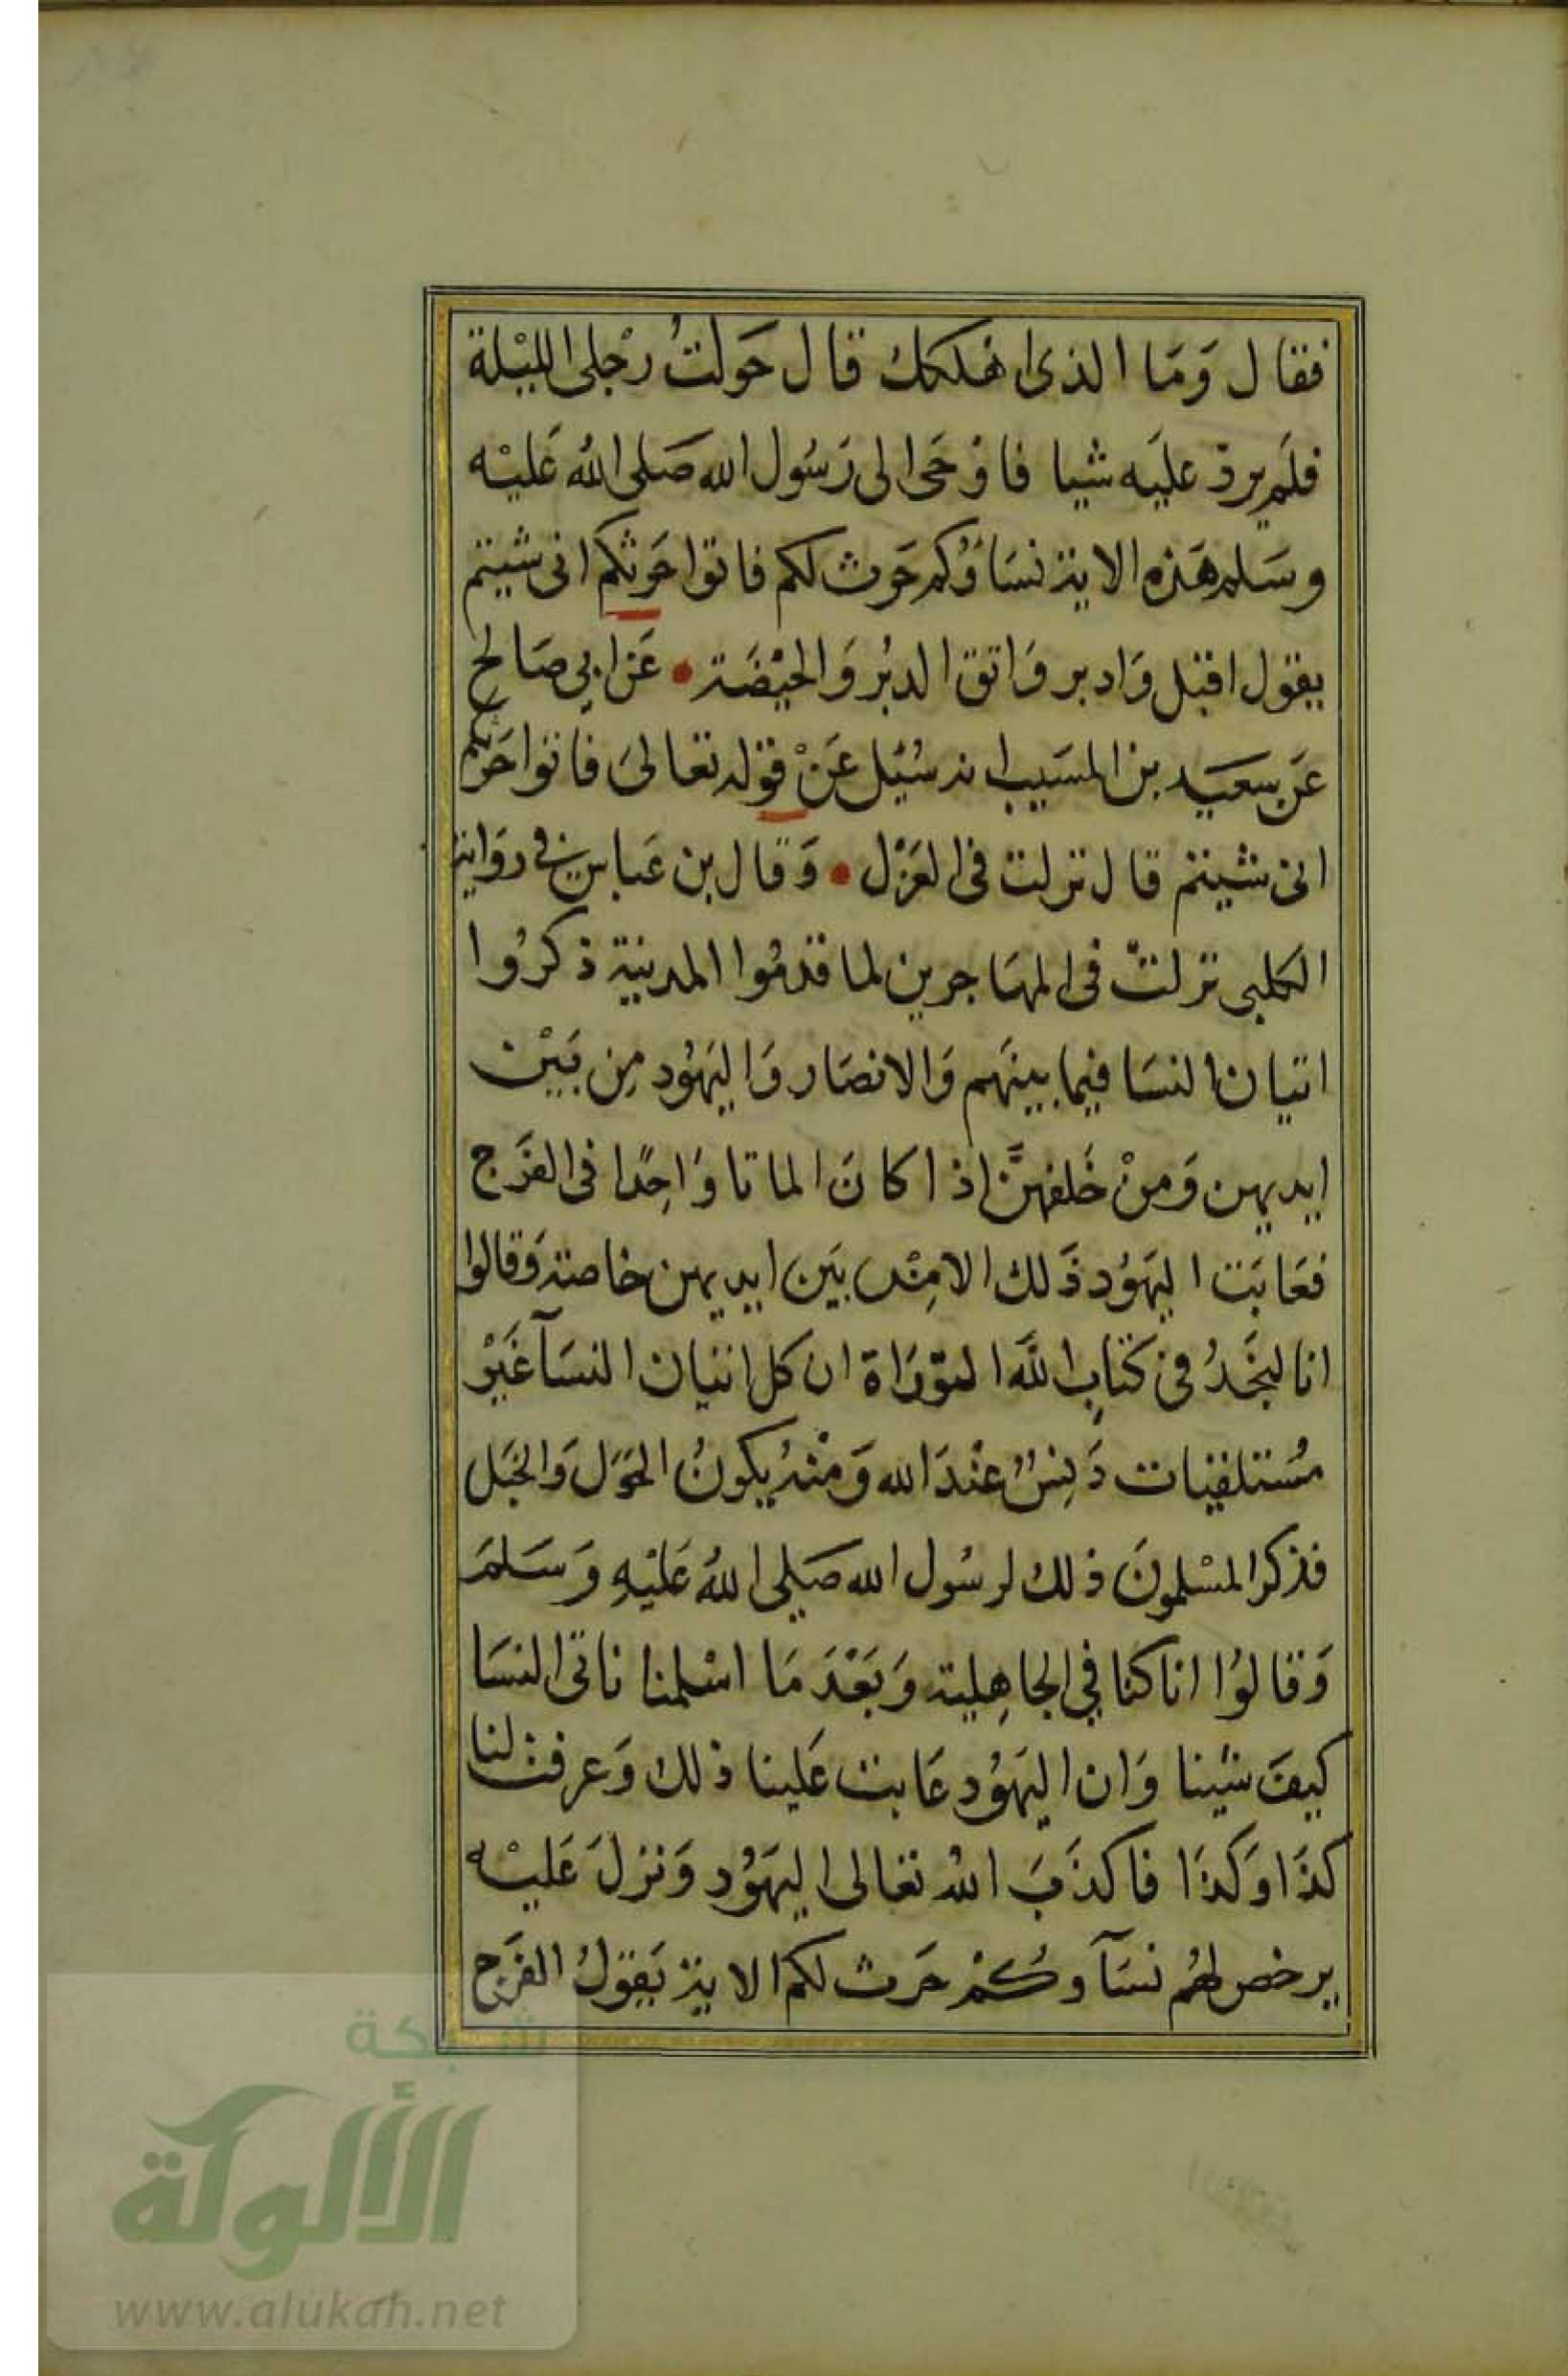 فقال وَمَا الذى اهلكك قال حَولتُ رْجلى الليْلة
فلَم يرد عليَه شيا فاوْحَى الى رَسُول الله صَلى اللهُ عَليْه
وسَلم هَذه الاية نسَاؤُكم حَرث لكم فاتوا حَرثكم انى شيتم
يقول اقبل وَادبر وَاتق الدبُر وَالحيْضَة • عَن ابي صَالح
عَن سعيَد بن المسَيب انه سُئِل عَنْ قوْله تعَالىَ فاتوا حَرثكم
انى شيتم قال نزلت فى العَزْل • وَقال بن عَباس فى روَاية
الكلبى نزلتْ فى المهَاجرين لما قدمُوا المدينة ذكرُوا
اتيان النسَا فيما بينهَم وَالانصَار وَاليَهُود مِن بَيْن
ايديهن وَمِنْ خَلفهنَّ اذا كانَ الماتا وَاحِدًا فى الفَرج
فعَابَت اليَهُود ذَلك الا مِنْ بَين ايديهن خاصة وَقالوا
انا لنجَدُ فى كتابِ اللَّه التوْرَاة ان كل اتيان النسَآ غَيْر
مُستلقيات دَنِسٌ عنْدَ الله وَمنْهُ يكونُ الحَوَل وَالخبَل
فذكر المسْلمونَ ذلك لرسُول الله صَلى اللهُ عَليْهِ وَسَلمَ
وَقالوُا انا كنا في الجاهِلية وَبَعْدَ مَا اسْلمنا ناتى النسَا
كيفَ شينا وَان اليَهُود عَابت عَلينا ذلك وَعرفت لنا
كذَا وَكذَا فاكذَبَ اللهُ تعالى اليَهُود وَنزلَ عَليْه
يرخص لهُم نسَآوكُمْ حَرث لكم الاية يَقولُ الفَرج
شبكة
الألوكة
www.alukah.net